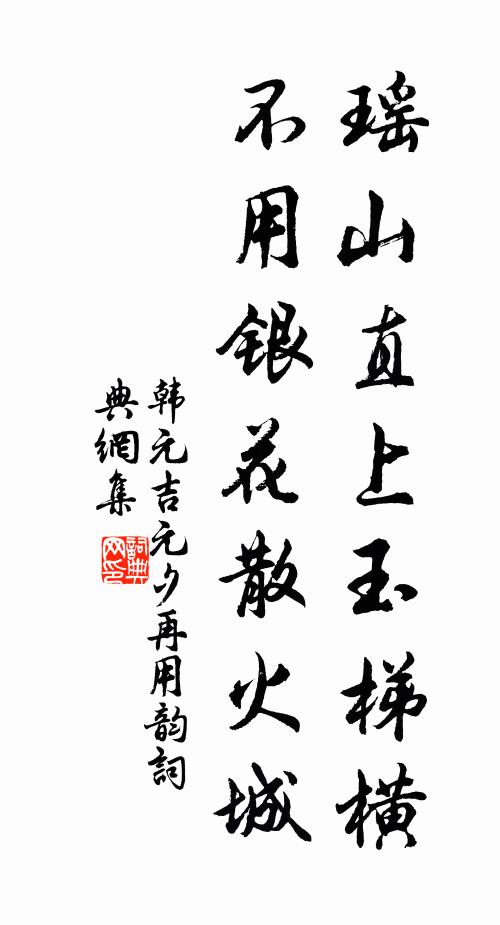 瑶山直上玉梯横
不用银花散火城
韩元吉元夕再用韵詞
典網集
詞典
网印